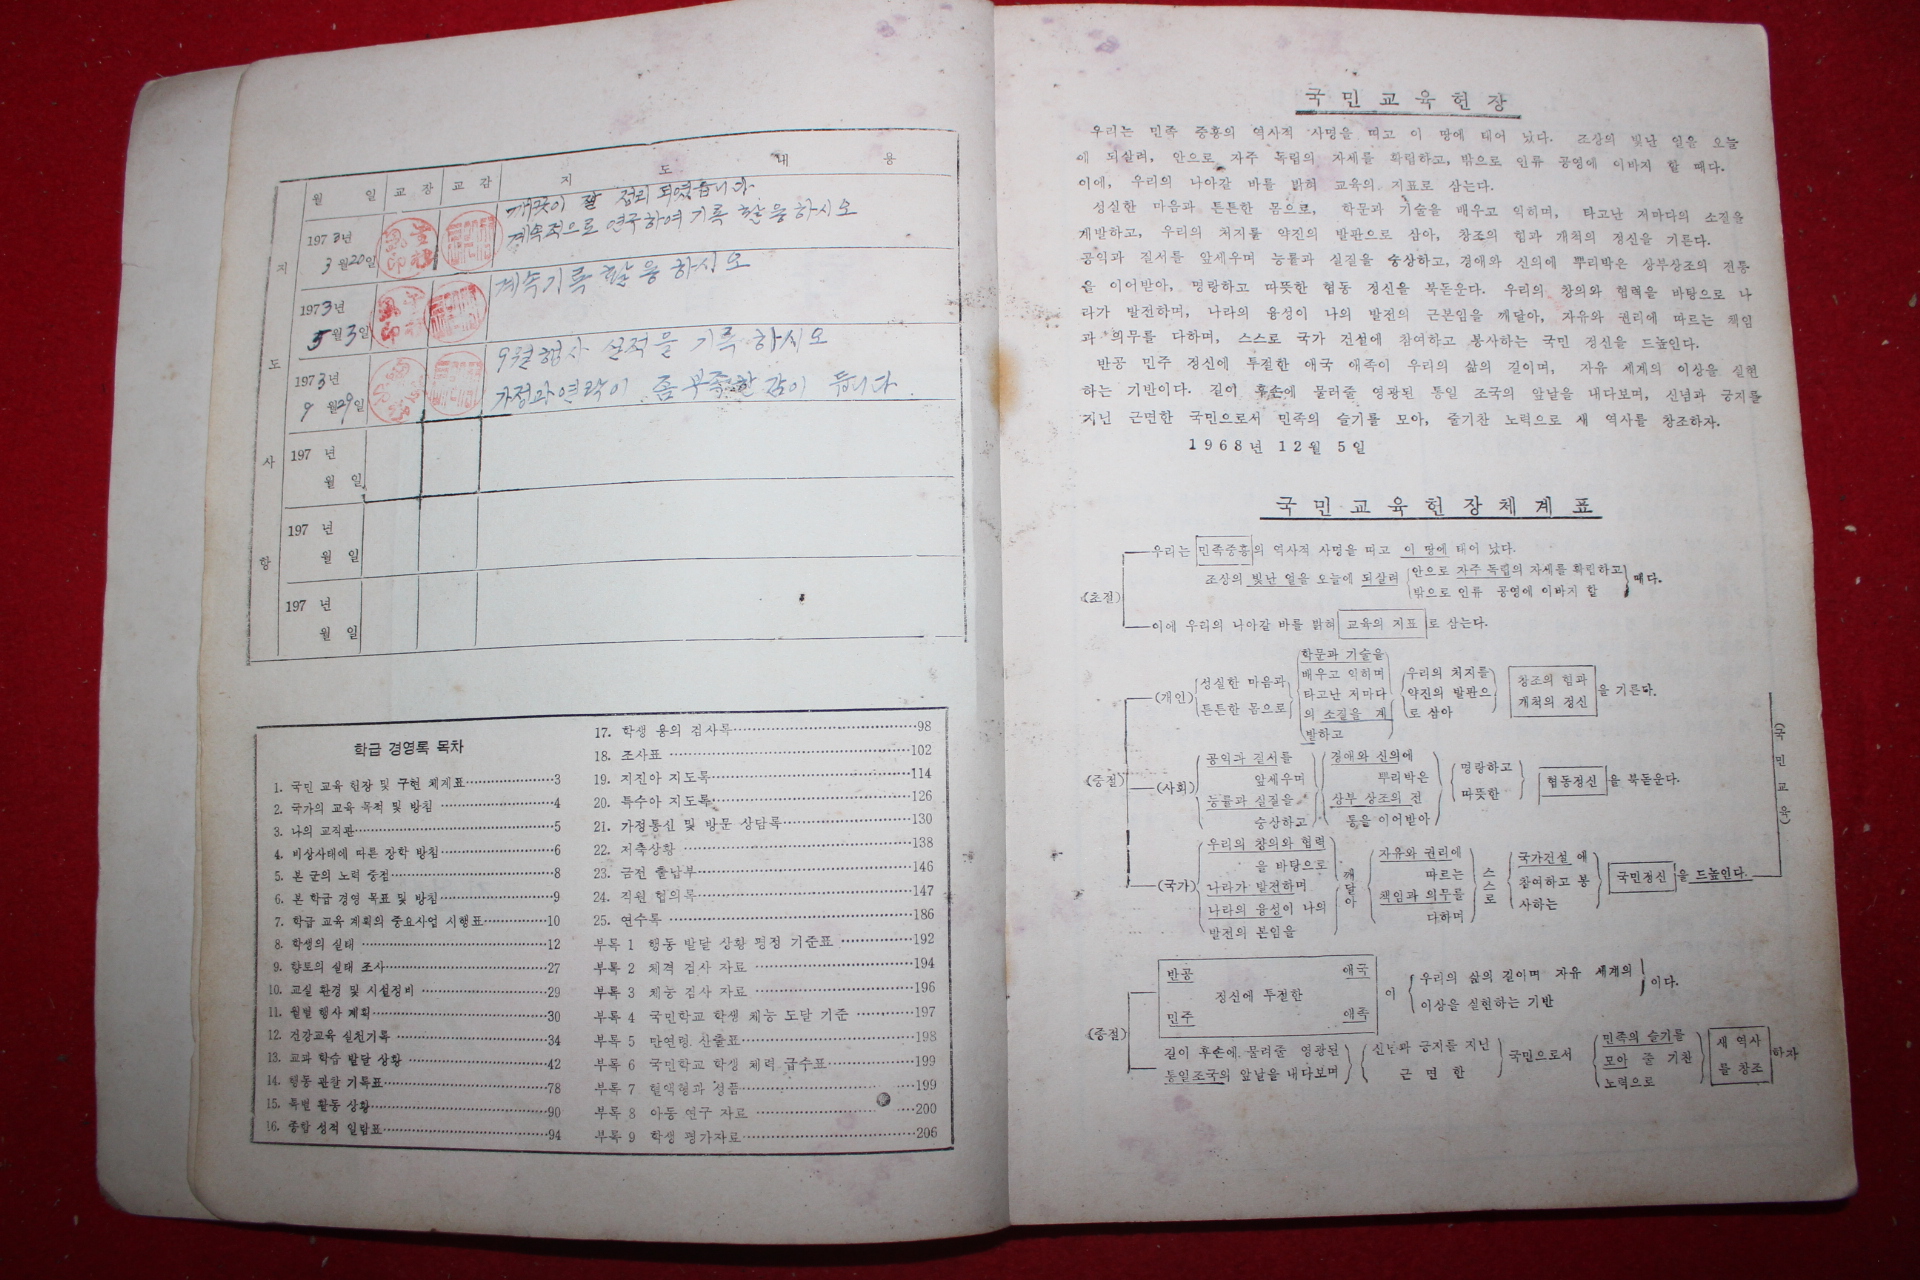 월 일 교 장 교 감 지 도 내 용
지 도 사 항
1973년
3월20일
깨끗이 잘 정리 되였읍니다
계속적으로 연구하여 기록 활용하시오
1973년
5월3일
계속기록 활용하시오
1973년
9월29일
9월행사 실적을 기록하시오
가정과연락이 좀 부족한 감이 듭니다.
197 년
월 일
197 년
월 일
197 년
월 일
학급 경영록 목차
1. 국민 교육 헌장 및 구현 체계표 3
2. 국가의 교육 목적 및 방침 4
3. 나의 교직관 5
4. 비상사태에 따른 장학 방침 6
5. 본 군의 노력 중점 8
6. 본 학급 경영 목표 및 방침 9
7. 학급 교육 계획의 중요사업 시행표 10
8. 학생의 실태 12
9. 향토의 실태 조사 27
10. 교실 환경 및 시설정비 29
11. 월별 행사 계획 30
12. 건강교육 실천기록 34
13. 교과 학습 발달 상황 42
14. 행동 관찰 기록표 78
15. 특별 활동 상황 90
16. 종합 성적 일람표 94
17. 학생 용의 검사록 98
18. 조사표 102
19. 지진아 지도록 114
20. 특수아 지도록 126
21. 가정통신 및 방문 상담록 130
22. 저축상황 138
23. 금전 출납부 146
24. 직원 협의록 147
25. 연수록 186
부록 1 행동 발달 상황 평정 기준표 192
부록 2 체격 검사 자료 194
부록 3 체능 검사 자료 196
부록 4 국민학교 학생 체능 도달 기준 197
부록 5 만연령 산출표 198
부록 6 국민학교 학생 체력 급수표 199
부록 7 혈액형과 성품 199
부록 8 아동 연구 자료 200
부록 9 학생 평가자료 206
국민교육헌장
우리는 민족 중흥의 역사적 사명을 띠고 이 땅에 태어 났다. 조상의 빛난 얼을 오늘
에 되살려, 안으로 자주 독립의 자세를 확립하고, 밖으로 인류 공영에 이바지 할 때다.
이에, 우리의 나아갈 바를 밝혀 교육의 지표로 삼는다.
성실한 마음과 튼튼한 몸으로, 학문과 기술을 배우고 익히며, 타고난 저마다의 소질을
계발하고, 우리의 처지를 약진의 발판으로 삼아, 창조의 힘과 개척의 정신을 기른다.
공익과 질서를 앞세우며 능률과 실질을 숭상하고, 경애와 신의에 뿌리박은 상부상조의 전통
을 이어받아, 명랑하고 따뜻한 협동 정신을 북돋운다. 우리의 창의와 협력을 바탕으로 나
라가 발전하며, 나라의 융성이 나의 발전의 근본임을 깨달아, 자유와 권리에 따르는 책임
과 의무를 다하며, 스스로 국가 건설에 참여하고 봉사하는 국민 정신을 드높인다.
반공 민주 정신에 투철한 애국 애족이 우리의 삶의 길이며, 자유 세계의 이상을 실현
하는 기반이다. 길이 후손에 물려줄 영광된 통일 조국의 앞날을 내다보며, 신념과 긍지를
지닌 근면한 국민으로서 민족의 슬기를 모아, 줄기찬 노력으로 새 역사를 창조하자.
1968년 12월 5일
국민교육헌장체계표
《초절》
우리는 민족중흥의 역사적 사명을 띠고 이 땅에 태어 났다.
조상의 빛난 얼을 오늘에 되살려 안으로 자주 독립의 자세를 확립하고 때다.
밖으로 인류 공영에 이바지 할
이에 우리의 나아갈 바를 밝혀 교육의 지표 로 삼는다.
《중절》
(개인) 성실한 마음과
튼튼한 몸으로
학문과 기술을
배우고 익히며
타고난 저마다
의 소질을 계
발하고
우리의 처지를
약진의 발판으
로 삼아
창조의 힘과
개척의 정신
을 기른다.
(사회) 공익과 질서를
앞세우며
능률과 실질을
숭상하고
경애와 신의에
뿌리박은
상부 상조의 전
통을 이어받아
명랑하고
따뜻한
협동정신 을 북돋운다.
(국가) 우리의 창의와 협력
을 바탕으로
나라가 발전하며
나라의 융성이 나의
발전의 본임을
깨달아
자유와 권리에
따르는
책임과 의무를
다하며
스스로
국가건설 에
참여하고 봉
사하는
국민정신 을 드높인다.
(국민교육)
《종절》
반공 애국
정신에 투철한
민주 애족
이
우리의 삶의 길이며 자유 세계의
이상을 실현하는 기반
이다.
길이 후손에 물려줄 영광된
통일조국의 앞날을 내다보며
신념과 긍지를 지닌
근 면 한
국민으로서
민족의 슬기를
모아 줄 기찬
노력으로
새 역사
를 창조
하자